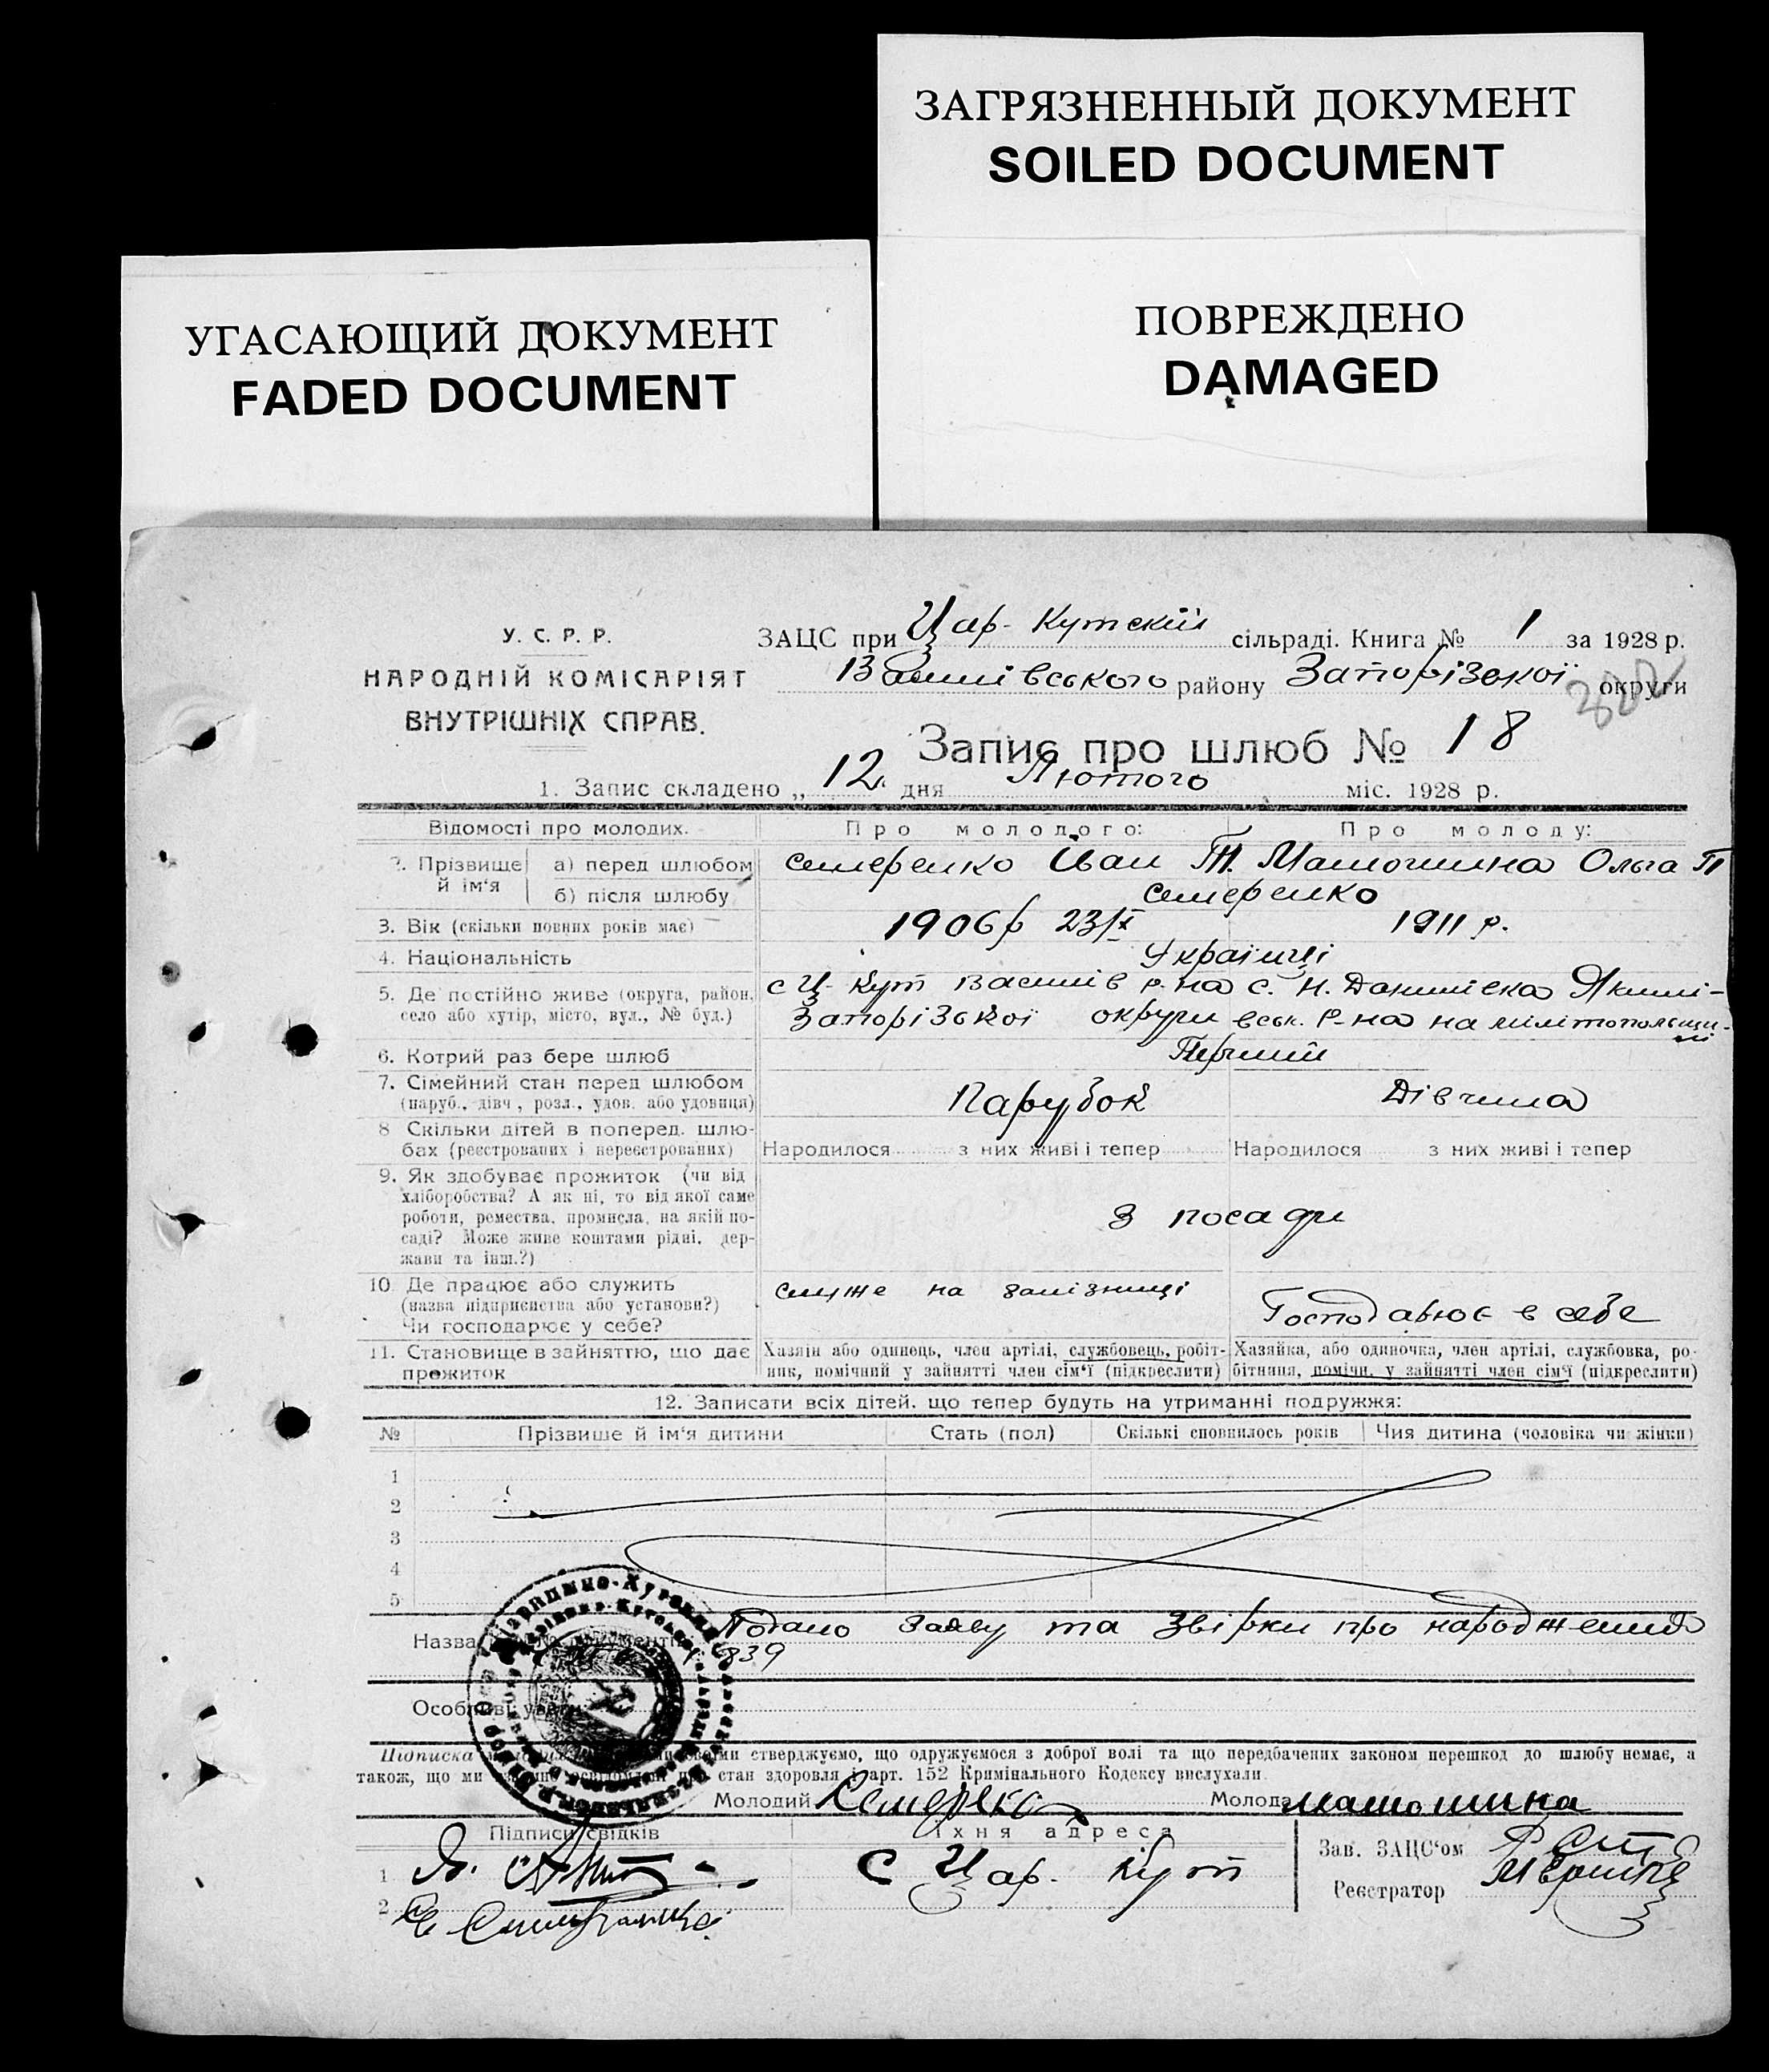 ЗАГРЯЗНЕННЫЙ ДОКУМЕНТ
SOILED DOCUMENT
ПОВРЕЖДЕНО
DAMAGED
УГАСАЮЩИЙ ДОКУМЕНТ
FADED DOCUMENT
У. С. Р. Р.
НАРОДНІЙ КОМІСАРІЯТ
ВНУТРІШНІХ СПРАВ.
ЗАЦС при Цар-Кутский сільраді. Книга № 1 за 1928 р.
району Запорізької округи
Запис про шлюб № 18
1. Запис складено „ 12 дня Лютого міс. 1928 р.
Відомості про молодих. Про молодого: Про молоду:
2. Прізвище й ім‘я а) перед шлюбом Семеренко Іван Т. Матюшина Ольга П
б) після шлюбу Семеренко
3. Вік (скільки повних років має) 1906 р 23/X 1911 р.
4. Національність Українці
5. Де постійно живе (округа, район, с Ц-Кут Василів р-на с. Н. Данилівка Якимі-
село або хутір, місто, вул., № буд.) Запорізької округи вськ. Р-на на мілітопольщи-
ні
6. Котрий раз бере шлюб Перший
7. Сімейний стан перед шлюбом Парубок Дівчина
(паруб., дівч., розл., удов. або удовиця)
8 Скільки дітей в поперед. шлю-
бах (реєстрованих і нереєстрованих) Народилося з них живі і тепер Народилося з них живі і тепер
9. Як здобуває прожиток (чи від
хліборобства? А як ні, то від якої саме
роботи, ремества, промисла, на якій по- З посади
саді? Може живе коштами рідні, дер-
жави та інш.?)
10. Де працює або служить служе на залізниці
(назва підприємства або установи?) Господарює в себе
Чи господарює у себе?
11. Становище в зайняттю, що дає Хазяїн або одинець, член артілі, службовець, робіт- Хазяйка, або одиночка, член артілі, службовка, ро-
прожиток ник, помічний у зайнятті член сім‘ї (підкреслити) бітниця, помічн. у зайнятті член сім‘ї (підкреслити)
12. Записати всіх дітей, що тепер будуть на утриманні подружжя:
№ Прізвище й ім‘я дитини Стать (пол) Скількі сповнилось років Чия дитина (чоловіка чи жінки)
1
2
3
4
5
Назва Подано заяву та Звірки про народження
839
Особливі уваги
Підписка ствержуємо, що одружуємося з доброї волі та що передбачених законом перешкод до шлюбу немає, а
також, що ми стан здоровля і арт. 152 Кримінального Кодексу вислухали.
Молодий Семеренко Молода Матюшина
Підписи свідків Їхня адреса Зав. ЗАЦС‘ом
1 С Цар. Кут
Реєстратор
2